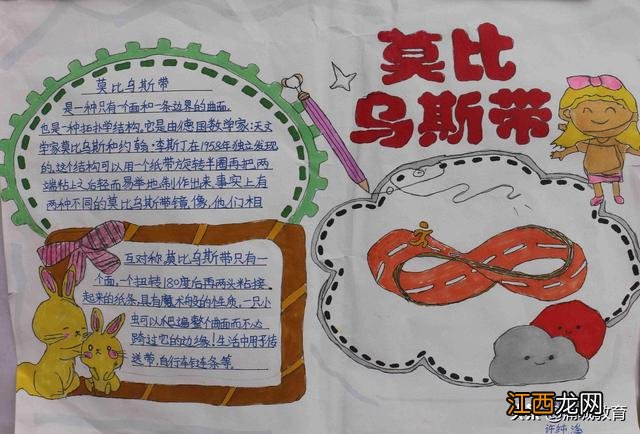 莫比
乌斯带
莫比乌斯带
是一种只有个面和一条边界的曲面,
也是一种拓扑学结构,它是由德国数学家:天文
学家莫比乌斯和约翰·李斯丁在1958年独立发现
的,这个结构可以用个纸带旋转半圈再把两
端粘上之后轻而易举地制作出来.事实上有
两种不同的莫比乌斯带镜像,他们相
互对称,莫比乌斯带只有一
个面,一个扭转180度后再两头粘接
起来的纸条,具有魔术般的性质,一只小
虫可以爬遍整个曲面而不必
跨过它的边缘!生活中用于传
送带,自行车钉连条等.
教育
许纯
江西龙网